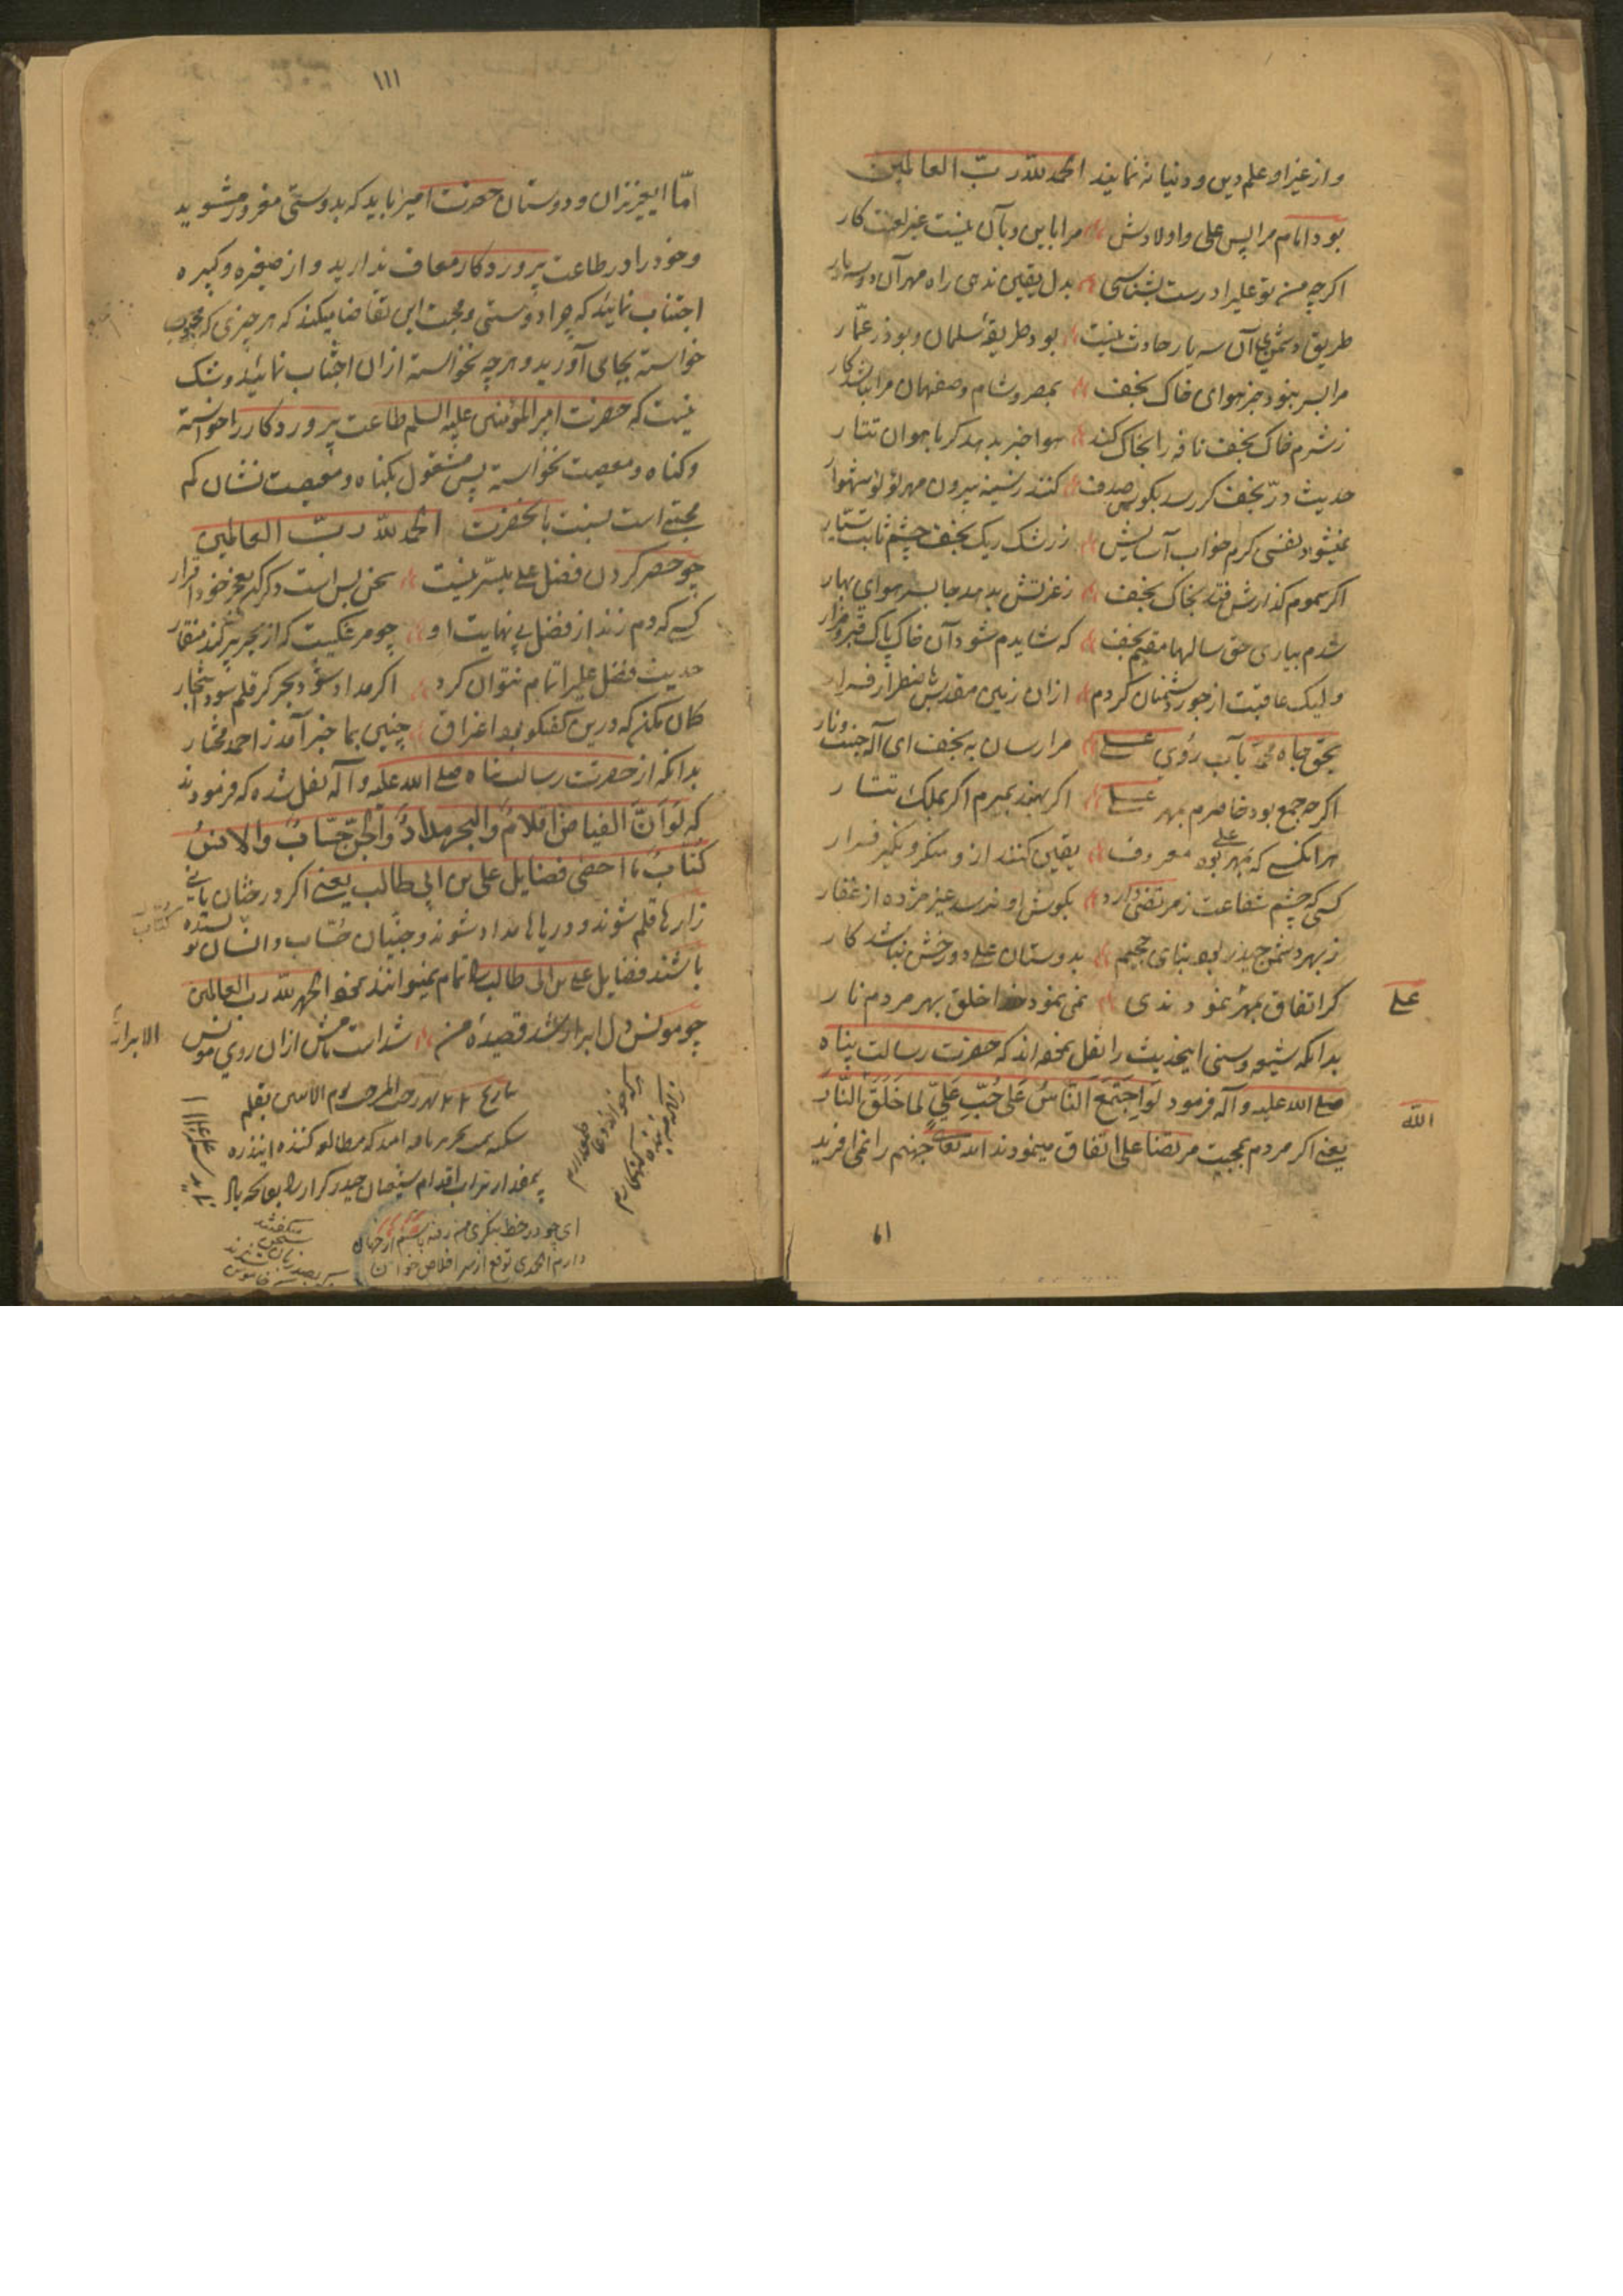 و از غیر او علم دین و دنیا نه نمایند الحمد لله رب العالمین
بود امام مرا پس علی و اولادش مرا باین و بآن نیست غیر لعنت کار
اکر چه من تو علیرا درست بشناسی بدل یقین ندهی راه مهر آن دو سه یار
طریق دشمنی آن سه یار حادث نیست بود طریقهٔ سلمان و بوذر عمّار
مرا بسر نبود جز هوای خاک نجف بمصر و شام و صفهان مرا نباشد کار
ز شرم خاک نجف نافه را بخاک کند هوا خبر بدهد کر باهوان تتار
حدیث درّ نجف کر رسد بکوش صدف کند ز سینه بیرون مهر لؤلؤ شهوار
نمیشود نفسی کرم خواب آسایش ز رشک ریک نجف چشم ثابت و سیار
اکر سموم کذارش فتد بخاک نجف ز غزتش بدهد جا بسر هوای بهار
شدم بیاری حق سالها مقیم نجف که شایدم شود آن خاک پاک قبر و مزار
ولیک عاقبت از جور دشمنان کردم ازان زمین مقدس باضطرار فرار
بحق جاه محمد بآب روی علی مرا رسان به نجف ای اله جنت و نار
اکر چه جمع بود خاطرم بمهر علی اکر بهند بمیرم اکر بملک تتار
هر انکس که بمهر علی بود معروف یقین کنند ازو منکر و نکیر فرار
کسی که چشم شفاعت ز مرتضی دارد بکوش او نرسد غیر مژده از غفار
ز بهر دشمن حیدر بود بنای جحیم بدوستان علی دوزخش نباشد کار
کر اتفاق بمهرش نمودندی نمی نمود خدا خلق بهر مردم نار
علی
بدانکه شیعه و سنی اینحدیث را نقل نموده اند که حضرت رسالت پناه
صلی الله علیه و آله فرمود لَوِاجتَمَعَ النَّاسُ عَلی حُبِّ عَلیٍّ لَما خَلَقَ النَّار
الله
یعنی اکر مردم بمحبت مرتضا علی اتفاق مینمودند الله تعالی جهنم را نمی افرید
۶۱
۱۱۱
امّا ایعزیزان و دوستان حضرت امیر باید که بدوستی مغرور مشوید
و خود را در طاعت پروردکار معاف ندارید و از صغیره و کبیره
اجتناب نمائید که چرا دوستی و محبت این تقاضا میکند که هر چیزی که محبوب
خواسته بجای آورید و هر چه نخواسته ازان اجتناب نمائید و شک
نیست که حضرت امیر المؤمنین علیه السلم طاعت پروردکار را خواسته
و کناه و معصیت نخواسته پس مشغول بکناه و معصیت نشان کم
محبتی است نسبت بانحضرت الحمد لله رب العالمین
چو حصر کردن فضل علی میسر نیست سخن بس است دکر کن بعجز خود اقرار
کسی که دم زند از فضل بی نهایت او چو مرغکیست که از بحر پر کند منقار
حدیث فضل علیرا تمام نتوان کرد اکر مداد شود بحر کر قلم شود اشجار
کمان مکن که درین کفتکو بود اغراق چنین بما خبر آمد ز احمد مختار
بدانکه از حضرت رسالت پناه صلی الله علیه و آله نقل شده که فرمودند
که لَو اَنَّ الغیاضَ اقلامٌ و البحر مدادٌ و الجن حسّابٌ و الانس
کُتّابٌ ما احصی فضایل علی بن ابی طالب یعنی اکر درختان یا نی
زارها قلم شوند و دریاها مداد شوند و جنّیان حسّاب و انسان نویسنده
کُتّاب
باشند فضایل علی بن ابی طالب را تمام نمیتوانند نمود الحمد لله رب العالمین
چو مونس دل ابرار شد قصیدهٔ من شداست نامش ازان روی مونس
الابرار
تاریخ ۲۲ شهر رجب المرجب یوم الاثنین بقلم
شکسته تحریر یافت امید که مطالعه کننده اینذره
بمقدار تراب اقدام شیعیان حیدر کرار را بفاتحه یاد
هر که خواند دعا طمع دارم
زانکه من بنده کنهکارم
ای چو در خط بنکری من رفته باشم از جهان
دارم الحمدی توقع از سر اخلاص خوان